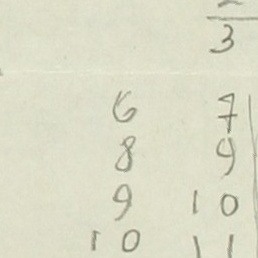 3
6 7
8 9
9 10
10 11